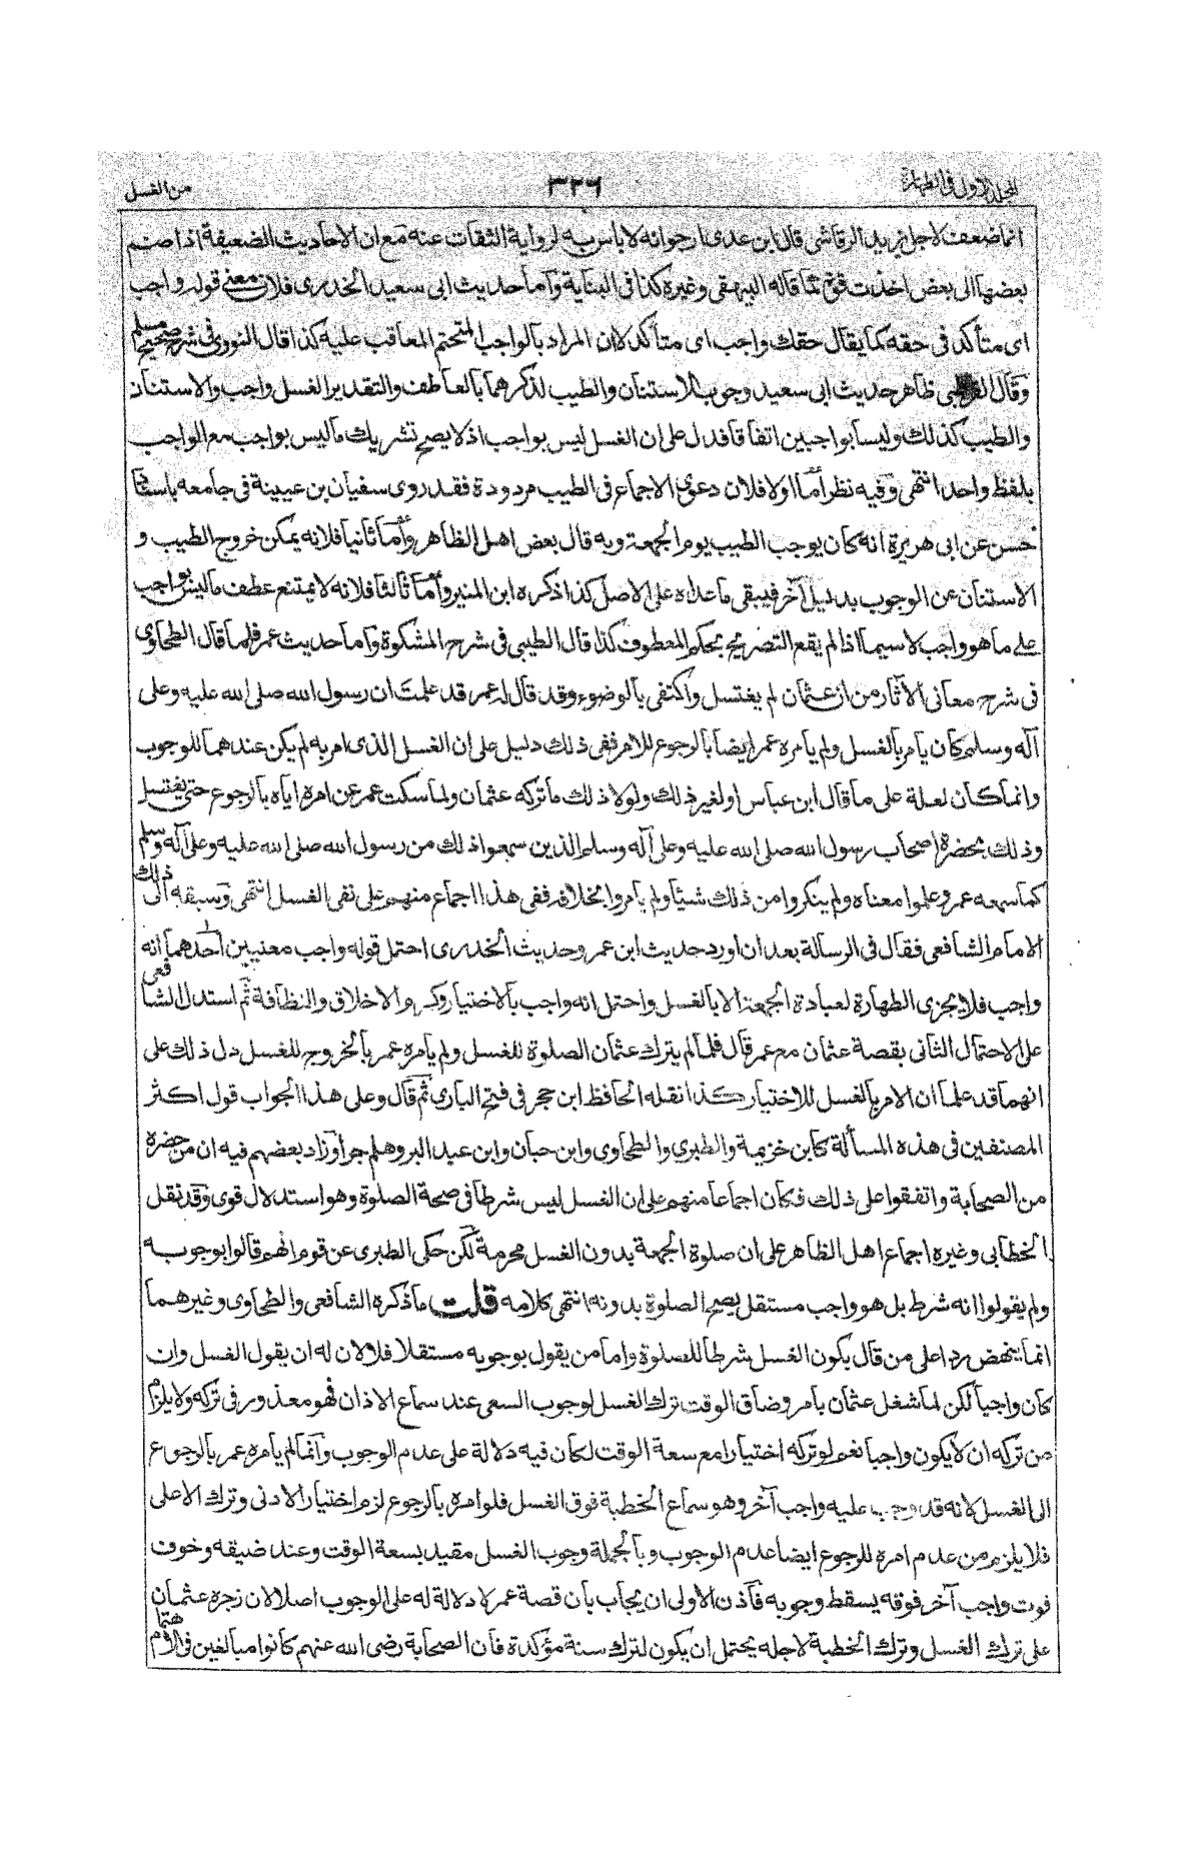 المجلد الاول فى الطهارة ٣٢٦ من الغسل
انما ضعف لاجل يزيد الرقاشى قال ابن عدى ارجوانه لا باس به لرواية الثقات عنه مع ان الاحاديث الضعيفة اذا ضم
بعضها الى بعض اخذت قوة قاله البيهقى وغيره كذا فى البناية وآما حديث ابى سعيد الخدرى فلان معنى قوله واجب
اى متأكد فى حقه كما يقال حقك واجب اى متأكد لان المراد بالواجب المتحتم المعاقب عليه كذا قال النووى فى شرح صحيح مسلم
وقال القرطبى ظاهر حديث ابى سعيد وجوب الاستنان والطيب لذكرهما بالعاطف والتقدير الغسل واجب والاستنان
والطيب كذلك وليسا بواجبين اتفاقا فدل على ان الغسل ليس بواجب اذ لا يصح تشريك ما ليس بواجب مع الواجب
بلفظ واحد انتهى وفيه نظر اما اولا فلان دعوى الاجماع فى الطيب مردودة فقد روى سفيان بن عيينة فى جامعه باسناد
حسن عن ابى هريرة انه كان يوجب الطيب يوم الجمعة وبه قال بعض اهل الظاهر وآما ثانيا فلانه يمكن خروج الطيب و
الاستنان عن الوجوب بدليل آخر فيبقى ما عداه على الاصل كذا ذكره ابن المنير وآما ثالثا فلانه لا يمتنع عطف ما ليس بواجب
على ما هو واجب لا سيما اذا لم يقع التصريح بحكم المعطوف كذا قال الطيبى فى شرح المشكوة وآما حديث عمر فلما قال الطحاوى
فى شرح معانى الآثار من ان عثمان لم يغتسل واكتفى بالوضوء وقد قال له عمر قد علمت ان رسول الله صلى الله عليه وعلى
آله وسلم كان يأمر بالغسل ولم يأمره عمر ايضا بالرجوع للامر ففى ذلك دليل على ان الغسل الذى امر به لم يكن عندهما للوجوب
وانما كان لعلة على ما قال ابن عباس او لغير ذلك ولولا ذلك ما تركه عثمان ولما سكت عمر عن امره اياه بالرجوع حتى يغتسل
وذلك بحضرة اصحاب رسول الله صلى الله عليه وعلى آله وسلم الذين سمعوا ذلك من رسول الله صلى الله عليه وعلى آله وسلم
كما سمعه عمر وعلموا معناه ولم ينكروا من ذلك شيئا ولم يأمروا بخلافه ففى هذا اجماع منهم على نفى الغسل انتهى وسبقه الى ذلك
الامام الشافعى فقال فى الرسالة بعد ان اورد حديث ابن عمر وحديث الخدرى احتمل قوله واجب معنيين احدهما انه
واجب فلا يجزى الطهارة لعبادة الجمعة الا بالغسل واحتمل انه واجب بالاختيار وكرم الاخلاق والنظافة ثم استدل الشافعى
على الاحتمال الثانى بقصة عثمان مع عمر قال فلما لم يترك عثمان الصلوة للغسل ولم يأمره عمر بالخروج للغسل دل ذلك على
انهما قد علما ان الامر بالغسل للاختيار كذا نقله الحافظ ابن حجر فى فتح البارى ثم قال وعلى هذا الجواب قول اكثر
المصنفين فى هذه المسألة كابن خزيمة والطبرى والطحاوى وابن حبان وابن عبد البر وهلم جرا وزاد بعضهم فيه ان من حضره
من الصحابة واتفقوا على ذلك فكان اجماعا منهم على ان الغسل ليس شرطا فى صحة الصلوة وهو استدلال قوى وقد نقل
الخطابى وغيره اجماع اهل الظاهر على ان صلوة الجمعة بدون الغسل محرمة لكن حكى الطبرى عن قوم انهم قالوا بوجوبه
ولم يقولوا انه شرط بل هو واجب مستقل يصح الصلوة بدونه انتهى كلامه قلت ما ذكره الشافعى والطحاوى وغيرهما
انما ينهض ردا على من قال بكون الغسل شرطا للصلوة واما من يقول بوجوبه مستقلا فلا لان له ان يقول الغسل وان
كان واجبا لكن لما شغل عثمان بامر وضاق الوقت ترك الغسل لوجوب السعى عند سماع الاذان فهو معذور فى تركه ولا يلزم
من تركه ان لا يكون واجبا نعم لو تركه اختيارا مع سعة الوقت لكان فيه دلالة على عدم الوجوب وآنما لم يأمره عمر بالرجوع
الى الغسل لانه قد وجب عليه واجب آخر وهو سماع الخطبة فوق الغسل فلو امره بالرجوع لزم اختيار الادنى وترك الاعلى
فلا يلزم من عدم امره للرجوع ايضا عدم الوجوب وبالجملة وجوب الغسل مقيد بسعة الوقت وعند ضيقه وخوف
فوت واجب آخر فوقه يسقط وجوبه فآذن الاولى ان يجاب بان قصة عمر لا دلالة له على الوجوب اصلا لان زجره عثمان
على ترك الغسل وترك الخطبة لاجله يحتمل ان يكون لترك سنة مؤكدة فان الصحابة رضى الله عنهم كانوا مبالغين فى الاهتمام